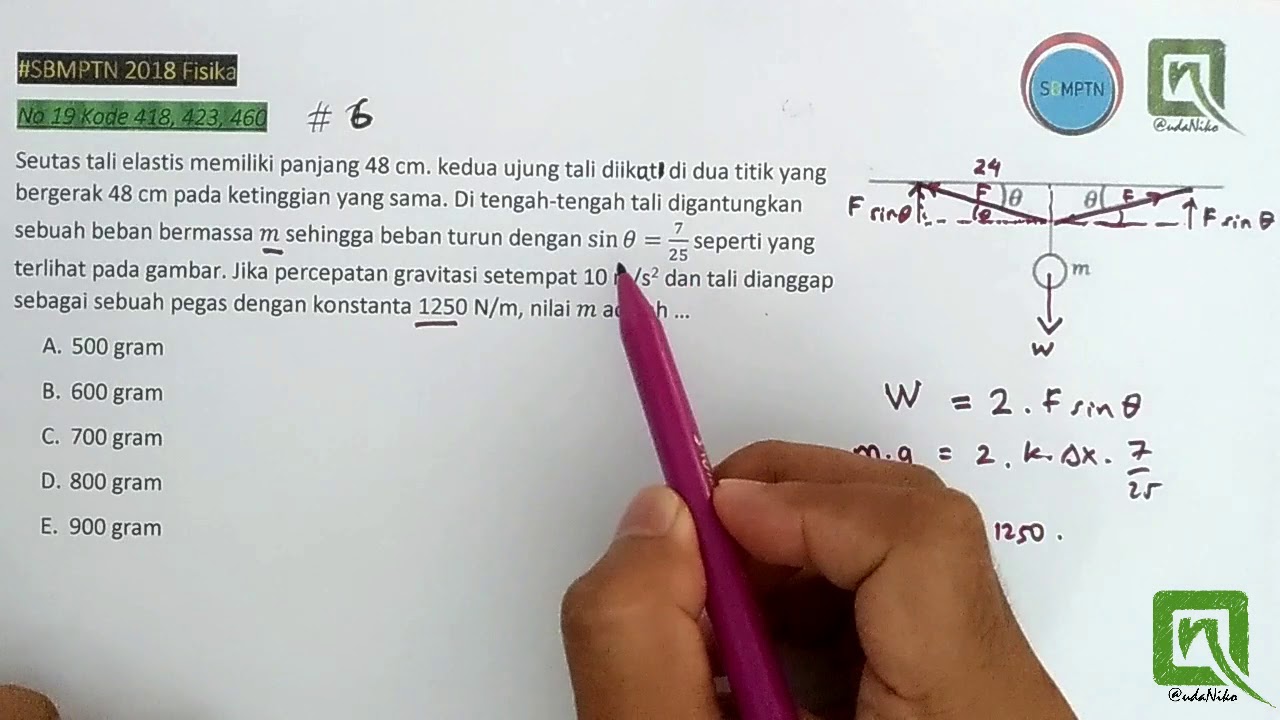 #SBMPTN 2018 Fisika
No 19 Kode 418, 423, 460
# 6
SBMPTN
@udaNiko
Seutas tali elastis memiliki panjang 48 cm. kedua ujung tali diikat di dua titik yang
bergerak 48 cm pada ketinggian yang sama. Di tengah-tengah tali digantungkan
sebuah beban bermassa m sehingga beban turun dengan sin θ = 7/25 seperti yang
terlihat pada gambar. Jika percepatan gravitasi setempat 10 /s² dan tali dianggap
sebagai sebuah pegas dengan konstanta 1250 N/m, nilai m ...
A. 500 gram
B. 600 gram
C. 700 gram
D. 800 gram
E. 900 gram
24
F θ θ F
F sinθ θ F sin θ
m
W
W = 2 . F sin θ
m.g = 2 . k. Δx . 7/25
1250 .
@udaNiko